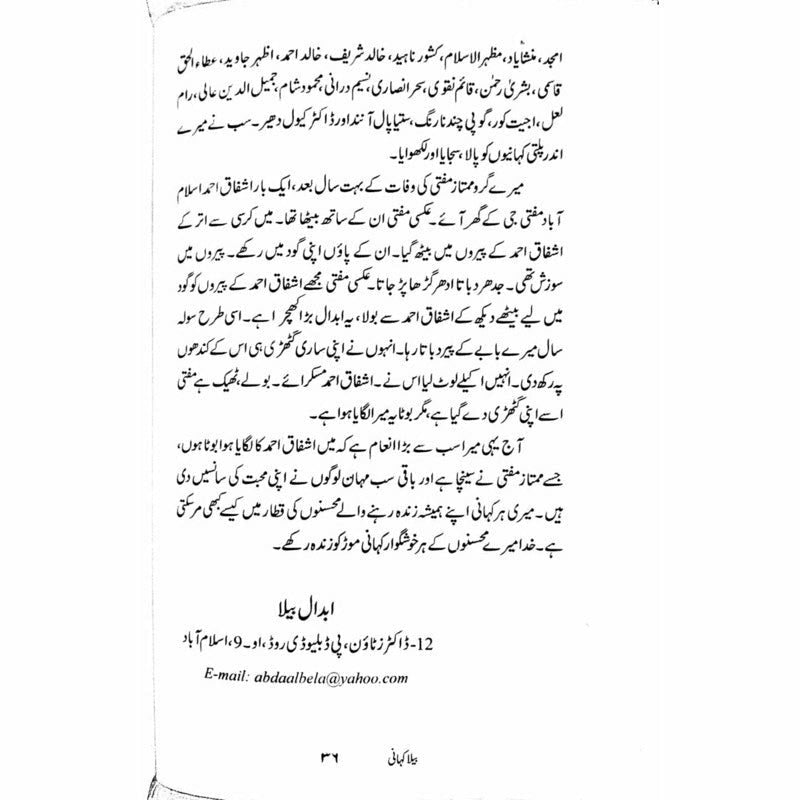 امجد، منشایاد، مظہر الاسلام، کشور ناہید، خالد شریف، خالد احمد، اظہر جاوید، عطاء الحق
قاسمی، بشریٰ رحمٰن، قائم نقوی، سحر انصاری، نسیم درانی، محمود شام، جمیل الدین عالی، رام
لعل، اجیت کور، گوپی چند نارنگ، ستیا پال آنند اور ڈاکٹر کیول دھیر۔ سب نے میرے
اندر پلتی کہانیوں کو پالا، سجایا اور لکھوایا۔
میرے گرو ممتاز مفتی کی وفات کے بہت سال بعد، ایک بار اشفاق احمد اسلام
آباد مفتی جی کے گھر آئے۔ عکسی مفتی ان کے ساتھ بیٹھا تھا۔ میں کرسی سے اتر کے
اشفاق احمد کے پیروں میں بیٹھ گیا۔ ان کے پاؤں اپنی گود میں رکھے۔ پیروں میں
سوزش تھی۔ جدھر دباتا ادھر گڑھا پڑ جاتا۔ عکسی مفتی مجھے اشفاق احمد کے پیروں کو گود
میں لیے بیٹھے دیکھ کے اشفاق احمد سے بولا، یہ ابدال بڑا کھچرا ہے۔ اسی طرح سولہ
سال میرے بابے کے پیر دباتا رہا۔ انہوں نے اپنی ساری گٹھڑی ہی اس کے کندھوں
پہ رکھ دی۔ انہیں اکیلے لوٹ لیا اس نے۔ اشفاق احمد مسکرائے۔ بولے، ٹھیک ہے مفتی
اسے اپنی گٹھڑی دے گیا ہے، مگر بوٹا یہ میرا لگایا ہوا ہے۔
آج یہی میرا سب سے بڑا انعام ہے کہ میں اشفاق احمد کا لگایا ہوا بوٹا ہوں،
جسے ممتاز مفتی نے سینچا ہے اور باقی سب مہان لوگوں نے اپنی محبت کی سانسیں دی
ہیں۔ میری ہر کہانی اپنے ہمیشہ زندہ رہنے والے محسنوں کی قطار میں کیسے کبھی مر سکتی
ہے۔ خدا میرے محسنوں کے ہر خوشگوار کہانی موڑ کو زندہ رکھے۔
ابدال بیلا
12- ڈاکٹرز ٹاؤن، پی ڈبلیو ڈی روڈ، او۔9، اسلام آباد
E-mail: abdaalbela@yahoo.com
بیلا کہانی ۳۶